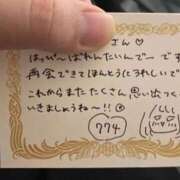 さん♡
はっぴーばれんたいんでーです
再会できてほんとうにうれしいで
これからまたたくさん思い出つく
いきましょうね〜!!
774